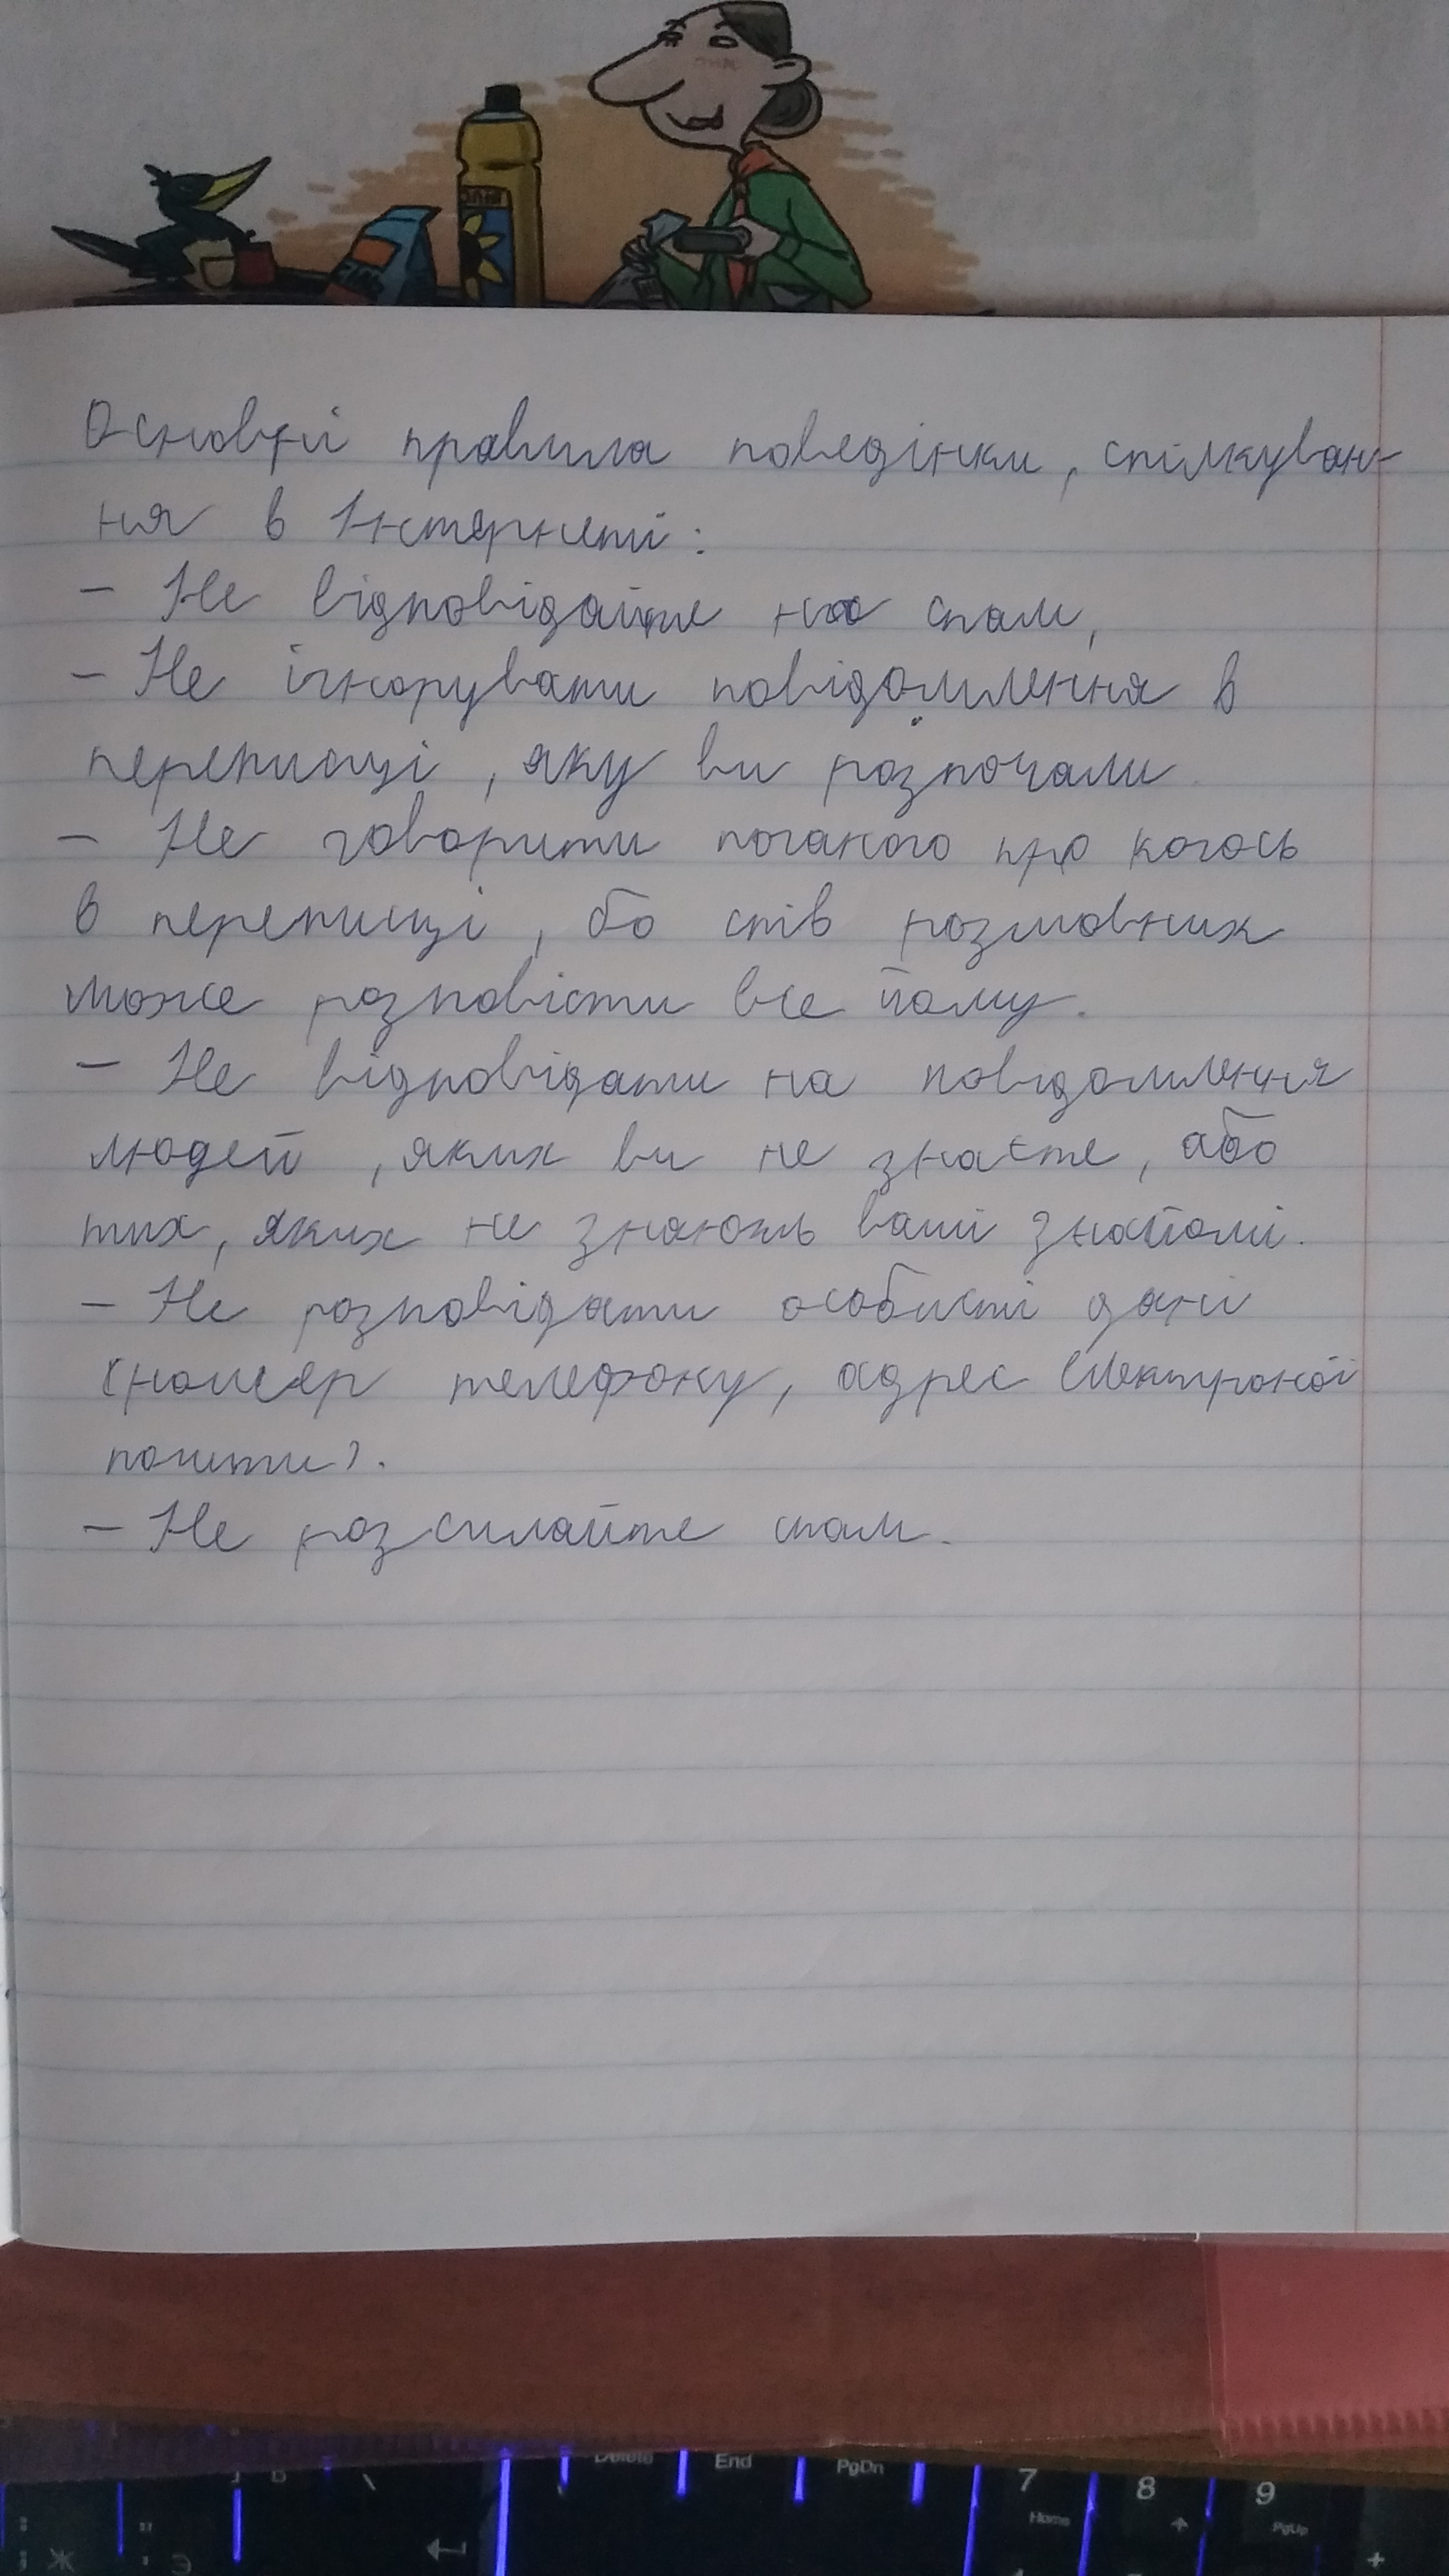 олія
Основні правила поведінки, спілкуван-
ня в Інтернеті:
- Не відповідайте на спам,
- Не ігнорувати повідомлення в
переписці, яку ви розпочали
- Не говорити поганого про когось
в переписці, бо спів розмовник
може розповісти все йому.
- Не відповідати на повідомлення
людей, яких ви не знаєте, або
тих, яких не знають ваші знайомі.
- Не розповідати особисті дані
(номер телефону, адрес електроної
пошти).
- Не розсилайте спам.
Delete End PgDn 7 8 9
Home PgUp
Ж Э +